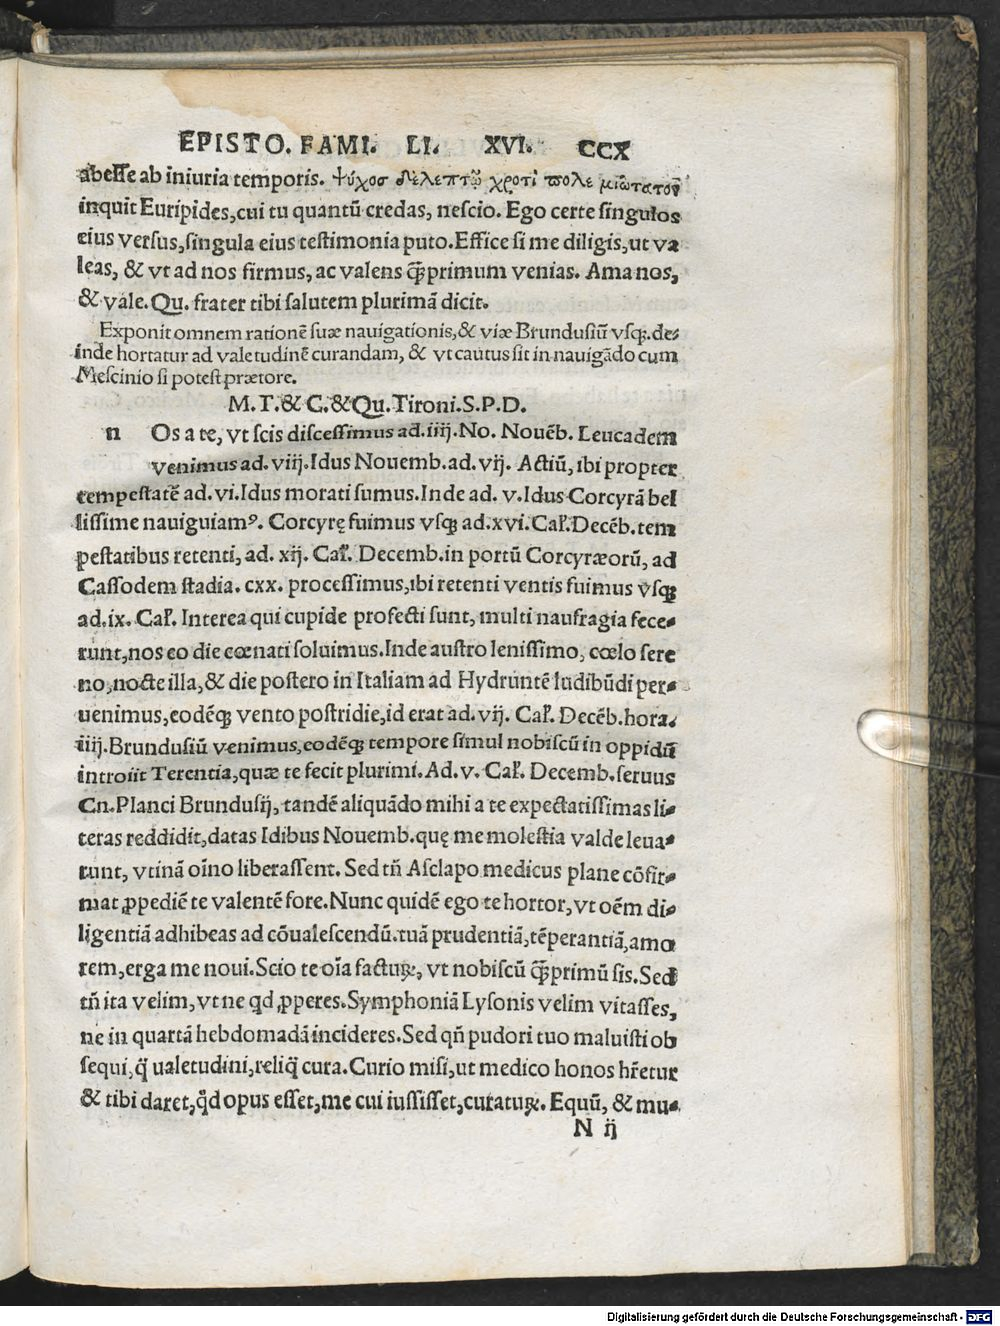 EPISTO. FAMI. LI. XVI. CCX
abesse ab iniuria temporis. ψύχοσ δὲ λεπτῷ χροτὶ πολεμιώτατον
inquit Euripides, cui tu quantũ credas, nescio. Ego certe singulos
eius versus, singula eius testimonia puto. Effice si me diligis, ut va
leas, & vt ad nos firmus, ac valens q̃primum venias. Ama nos,
& vale. Qu. frater tibi salutem plurimã dicit.
Exponit omnem rationẽ suæ nauigationis, & viæ Brundusiũ vsq;. de-
inde hortatur ad valetudinẽ curandam, & vt cautus sit in nauigãdo cum
Mescinio si potest prætore.
M. T. & C. & Qu. Tironi. S. P. D.
n Os a te, vt scis discessimus ad. iiij. No. Nouẽb. Leucadem
venimus ad. viij. Idus Nouemb. ad. vij. Actiũ, ibi propter
tempestatẽ ad. vi. Idus morati sumus. Inde ad. v. Idus Corcyrã bel
lissime nauiguiamꝰ. Corcyrę fuimus vsq; ad. xvi. Cal'. Decẽb. tem
pestatibus retenti, ad. xij. Cal'. Decemb. in portũ Corcyræorũ, ad
Cassodem stadia. cxx. processimus, ibi retenti ventis fuimus vsq;
ad. ix. Cal'. Interea qui cupide profecti sunt, multi naufragia fece-
runt, nos eo die cœnati soluimus. Inde austro lenissimo, cœlo sere
no, nocte illa, & die postero in Italiam ad Hydruntẽ ludibũdi per-
uenimus, eodẽq; vento postridie, id erat ad. vij. Cal'. Decẽb. hora.
iiij. Brundusiũ venimus, eodẽq; tempore simul nobiscũ in oppidũ
introiit Terentia, quæ te fecit plurimi. Ad. v. Cal'. Decemb. seruus
Cn. Planci Brundusij, tandẽ aliquãdo mihi a te expectatissimas li-
teras reddidit, datas Idibus Nouemb. quę me molestia valde leua-
runt, vtinã oĩno liberassent. Sed tñ Asclapo medicus plane cõfir-
mat ꝓpediẽ te valentẽ fore. Nunc quidẽ ego te hortor, vt oẽm di-
ligentiã adhibeas ad cõualescendũ. tuã prudentiã, tẽperantiã, amo
rem, erga me noui. Scio te oĩa facturꝫ, vt nobiscũ q̃primũ sis. Sed
tñ ita velim, vt ne qd ꝓperes. Symphoniã Lysonis velim vitasses,
ne in quartã hebdomadã incideres. Sed qñ pudori tuo maluisti ob
sequi, q̃ ualetudini, reliq̃ cura. Curio misi, ut medico honos hr̃etur
& tibi daret, qd̃ opus esset, me cui iussisset, curaturꝫ. Equũ, & mu-
N ij
Digitalisierung gefördert durch die Deutsche Forschungsgemeinschaft - DFG